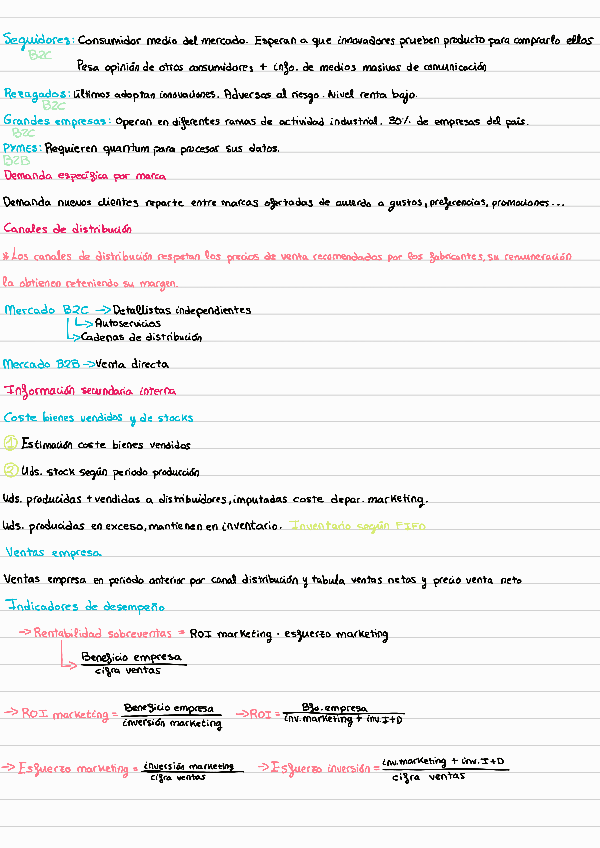 Seguidores: Consumidor medio del mercado. Esperan a que innovadores prueben producto para comprarlo ellos
B2C
Pesa opinión de otros consumidores + info. de medios masivos de comunicación
Rezagados: últimos adoptan innovaciones. Adversos al riesgo. Nivel renta bajo.
B2C
Grandes empresas: Operan en diferentes ramas de actividad industrial. 30% de empresas del país.
B2C
PYMES: Requieren quantum para procesar sus datos.
B2B
Demanda específica por marca
Demanda nuevos clientes reparte entre marcas ofertadas de acuerdo a gustos, preferencias, promociones...
Canales de distribución
* Los canales de distribución respetan los precios de venta recomendados por los fabricantes, su remuneración
la obtienen reteniendo su margen.
Mercado B2C → Detallistas independientes
↳ Autoservicios
↳ Cadenas de distribución
Mercado B2B → Venta directa
Información secundaria interna
Coste bienes vendidos y de stocks
① Estimación coste bienes vendidos
② Uds. stock según periodo producción
Uds. producidas + vendidas a distribuidores, imputadas coste depar. marketing.
Uds. producidas en exceso, mantienen en inventario. Inventario según FIFO
Ventas empresa
Ventas empresa en periodo anterior por canal distribución y tabula ventas netas y precio venta neto
Indicadores de desempeño
→ Rentabilidad sobreventas = ROI marketing · esfuerzo marketing
↳ Beneficio empresa
cifra ventas
→ ROI marketing = Beneficio empresa / inversión marketing → ROI = Bfo. empresa / inv. marketing + inv. I+D
→ Esfuerzo marketing = inversión marketing / cifra ventas → Esfuerzo inversión = inv. marketing + inv. I+D / cifra ventas